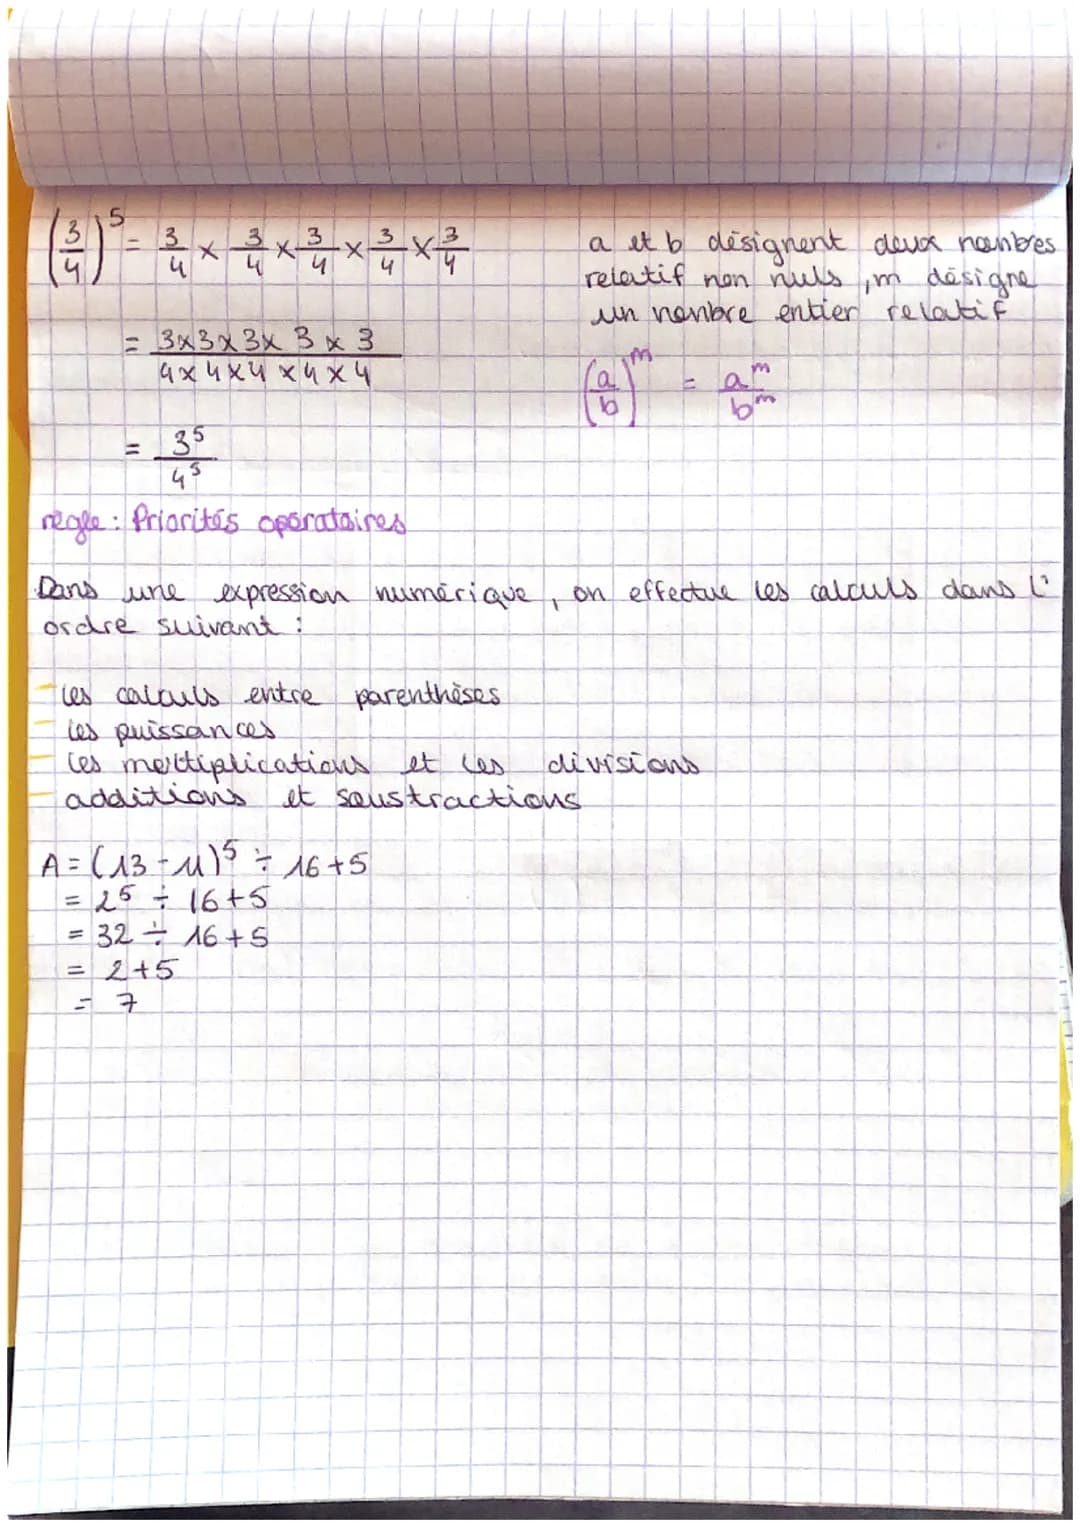 (3/4)^5 = 3/4 × 3/4 × 3/4 × 3/4 × 3/4
= 3×3×3×3×3 / 4×4×4×4×4
= 3^5 / 4^5
a et b désignent deux nombres
relatif non nuls, m désigne
un nombre entier relatif
(a/b)^m = a^m / b^m
règle : Priorités opératoires
Dans une expression numérique, on effectue les calculs dans l'
ordre suivant :
- les calculs entre parenthèses
- les puissances
- les multiplications et les divisions
- additions et soustractions
A = (13 - 11)^5 ÷ 16 + 5
= 2^5 ÷ 16 + 5
= 32 ÷ 16 + 5
= 2 + 5
= 7